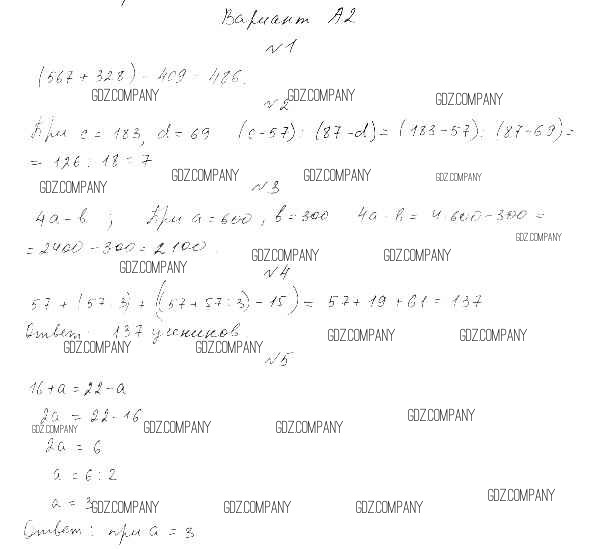 Вариант А2
№1
(567 + 328) - 409 = 486.
GDZ.COMPANY GDZ.COMPANY GDZ.COMPANY
№2
При c = 183, d = 69 (c-57) : (87-d) = (183-57) : (87-69) =
= 126 : 18 = 7
GDZ.COMPANY GDZ.COMPANY GDZ.COMPANY GDZ.COMPANY
№3
4a - b ; При a = 600, b = 300 4a - b = 4·600 - 300 =
GDZ.COMPANY
= 2400 - 300 = 2100.
GDZ.COMPANY GDZ.COMPANY GDZ.COMPANY
№4
57 + (57 : 3) + ((57 + 57 : 3) - 15) = 57 + 19 + 61 = 137
Ответ: 137 учеников
GDZ.COMPANY GDZ.COMPANY GDZ.COMPANY GDZ.COMPANY
№5
16 + a = 22 - a
2a = 22 - 16
GDZ.COMPANY GDZ.COMPANY GDZ.COMPANY GDZ.COMPANY
2a = 6
a = 6 : 2
a = 3
GDZ.COMPANY GDZ.COMPANY GDZ.COMPANY GDZ.COMPANY
Ответ: при a = 3